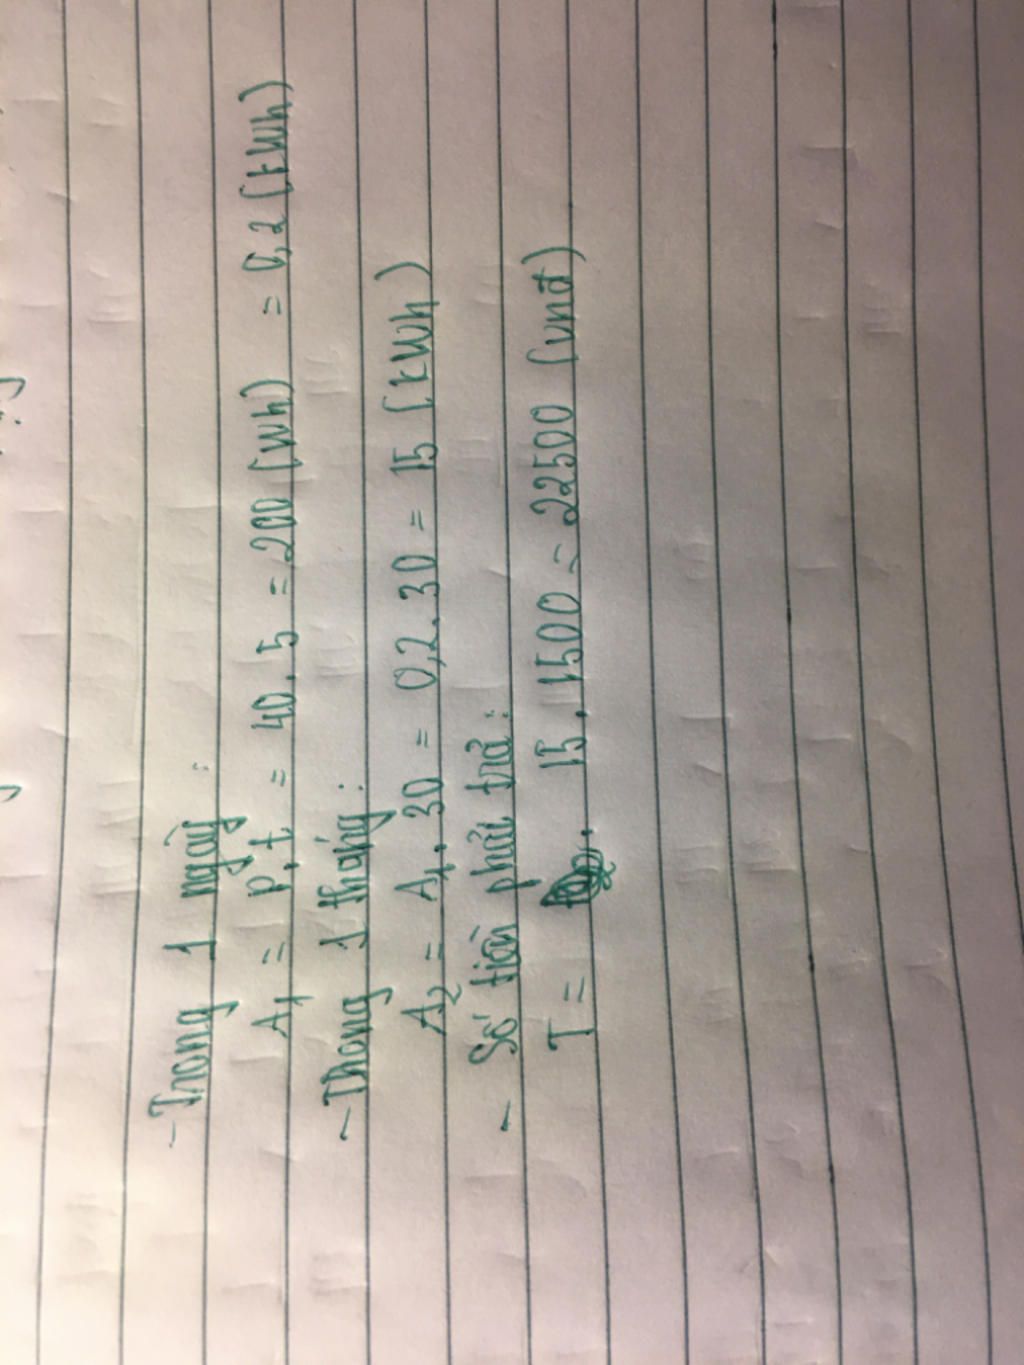 - Trong 1 ngày :
A₁ = P.t = 40.5 = 200 (Wh) = 0,2 (kWh)
- Thong 1 tháng :
A₂ = A₁.30 = 0,2.30 = 15 (kWh)
- Số tiền phải trả :
T = 15.1500 = 22500 (vnđ)